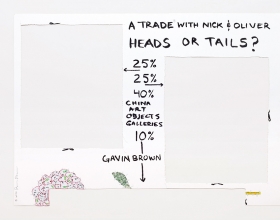 A TRADE WITH NICK & OLIVER
HEADS OR TAILS?
25%
25%
40%
CHINA
ART
OBJECTS
GALLERIES
10%
GAVIN BROWN